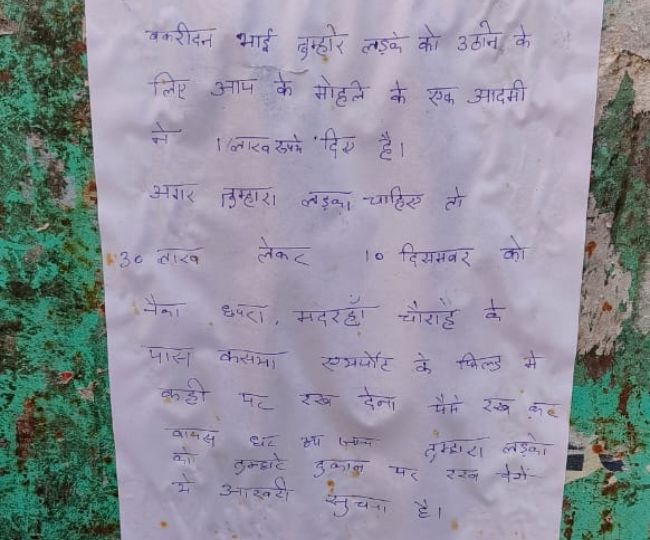 बकरीदन भाई तुम्हारे लड़के को उठाने के
लिए आप के मोहले के एक आदमी
ने 1 लाख रुपये दिए है।
अगर तुम्हारा लड़का चाहिए तो
30 लाख लेकर 10 दिसमबर को
नैका छपरा, मदरहाँ चौराहे के
पास कसया एयरपोर्ट के फिल्ड मे
कही पर रख देना पैसे रख कर
वापस घर आ जाना तुम्हारा लड़के
को तुम्हारे दुकान पर रख देगें
ये आखरी सुचना है।